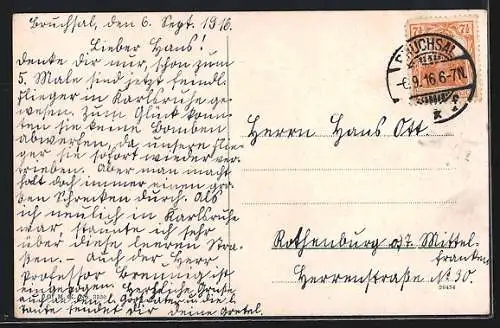 Bruchsal, den 6. Sept. 1916.
Lieber Hans!
Denke dir nur, schon zum
5. Male sind jetzt feindl.
Flieger in Karlsruhe ge-
wesen. Zum Glück konn-
ten sie keine Bomben
abwerfen, da unsere Flie-
ger sie sofort wieder ver-
trieben. Aber man macht
halt doch immer einen gro-
ßen Schrecken durch. Als
ich neulich in Karlsruhe
war, staunte ich sehr
über diese leeren Stra-
ßen. – Auch der Herr
Professor Brennig ist
eingezogen. Herzliche Grüße
auch an den l. Großvater u. die l.
Tante sendet dir deine Gretel.
7½ 7½
BRUCHSAL
-6.9.16.6-7N.
Herrn Hans Ott
Rothenburg o/T. Mittel-
franken
Herrenstraße No 30.
26434